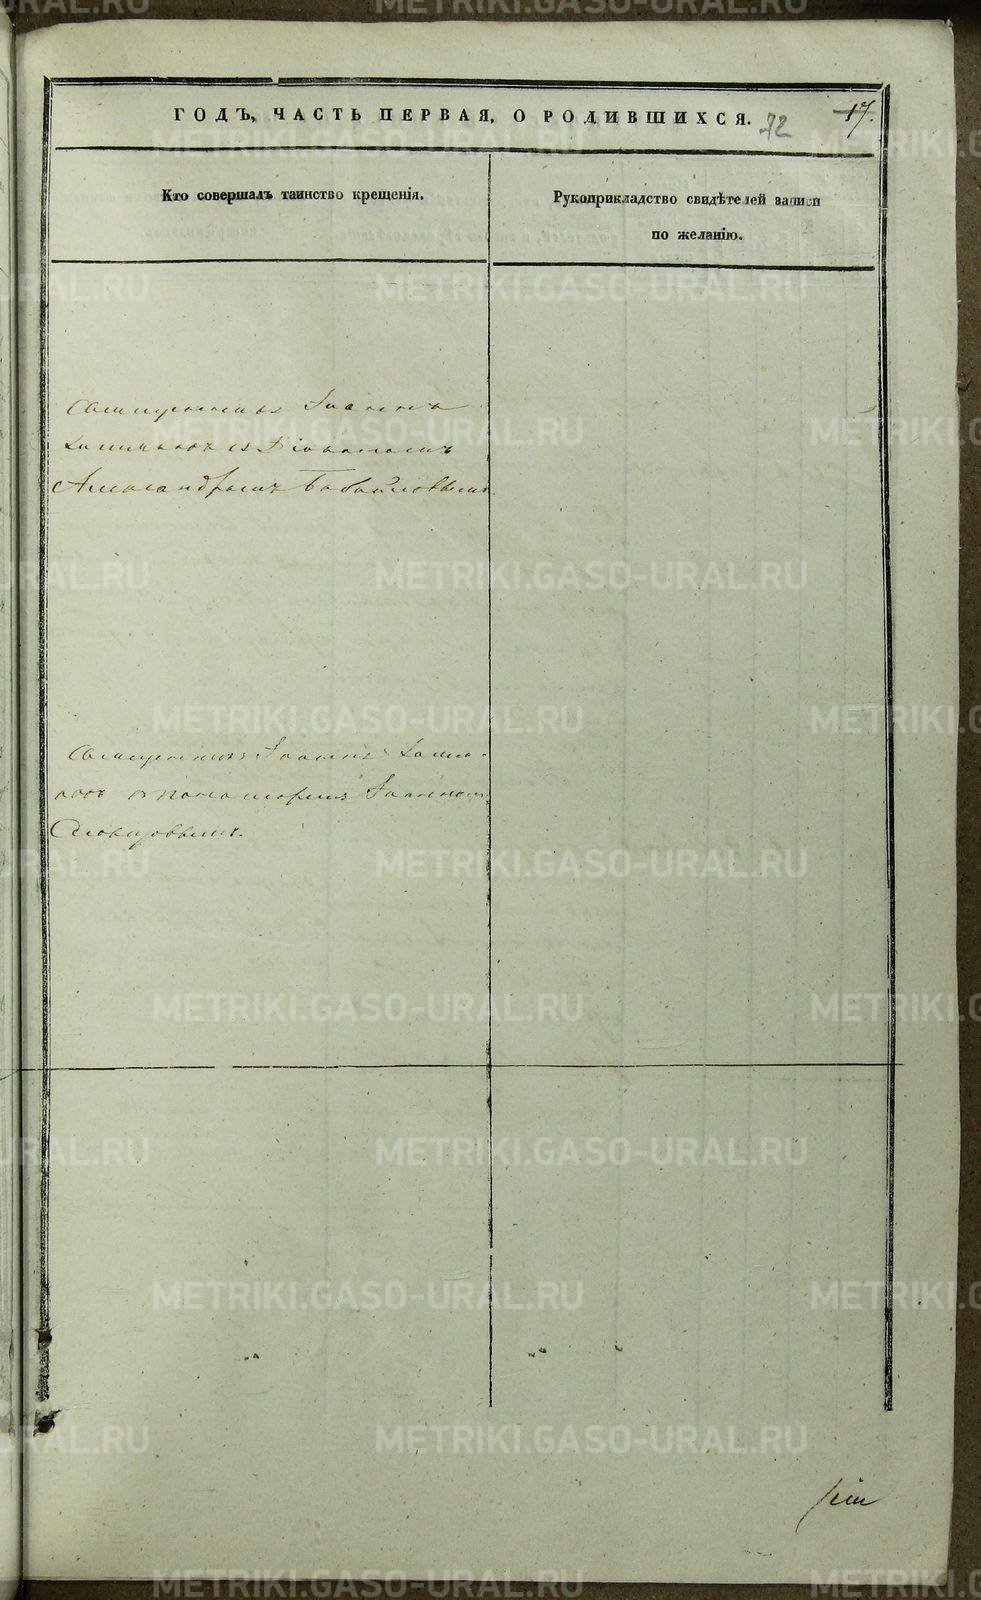 ГОДЪ, ЧАСТЬ ПЕРВАЯ, О РОДИВШИХСЯ.
72
17.
Кто совершалъ таинство крещенія.
Рукоприкладство свидѣтелей записи
по желанію.
Священникъ Іоаннъ
съ Діакономъ
Александромъ Бабайловымъ.
Священникъ Іоаннъ
съ пономаремъ Іоанномъ
Словцовымъ.
METRIKI.GASO-URAL.RU